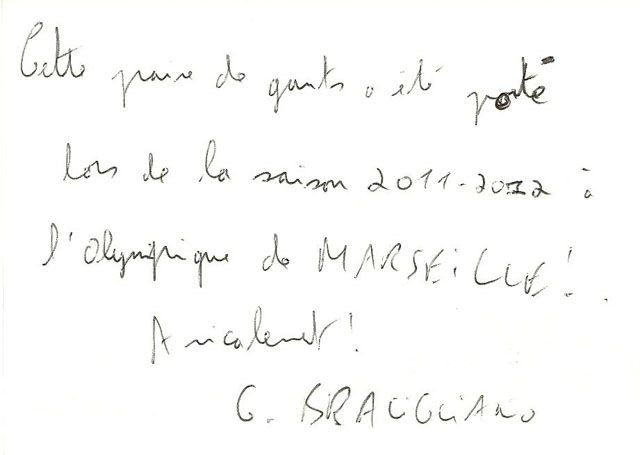 Cette paire de gants a été porté
lors de la saison 2011-2012 à
l'Olympique de MARSEiLLE!
Amicalement!
G. BRACiGLiANO